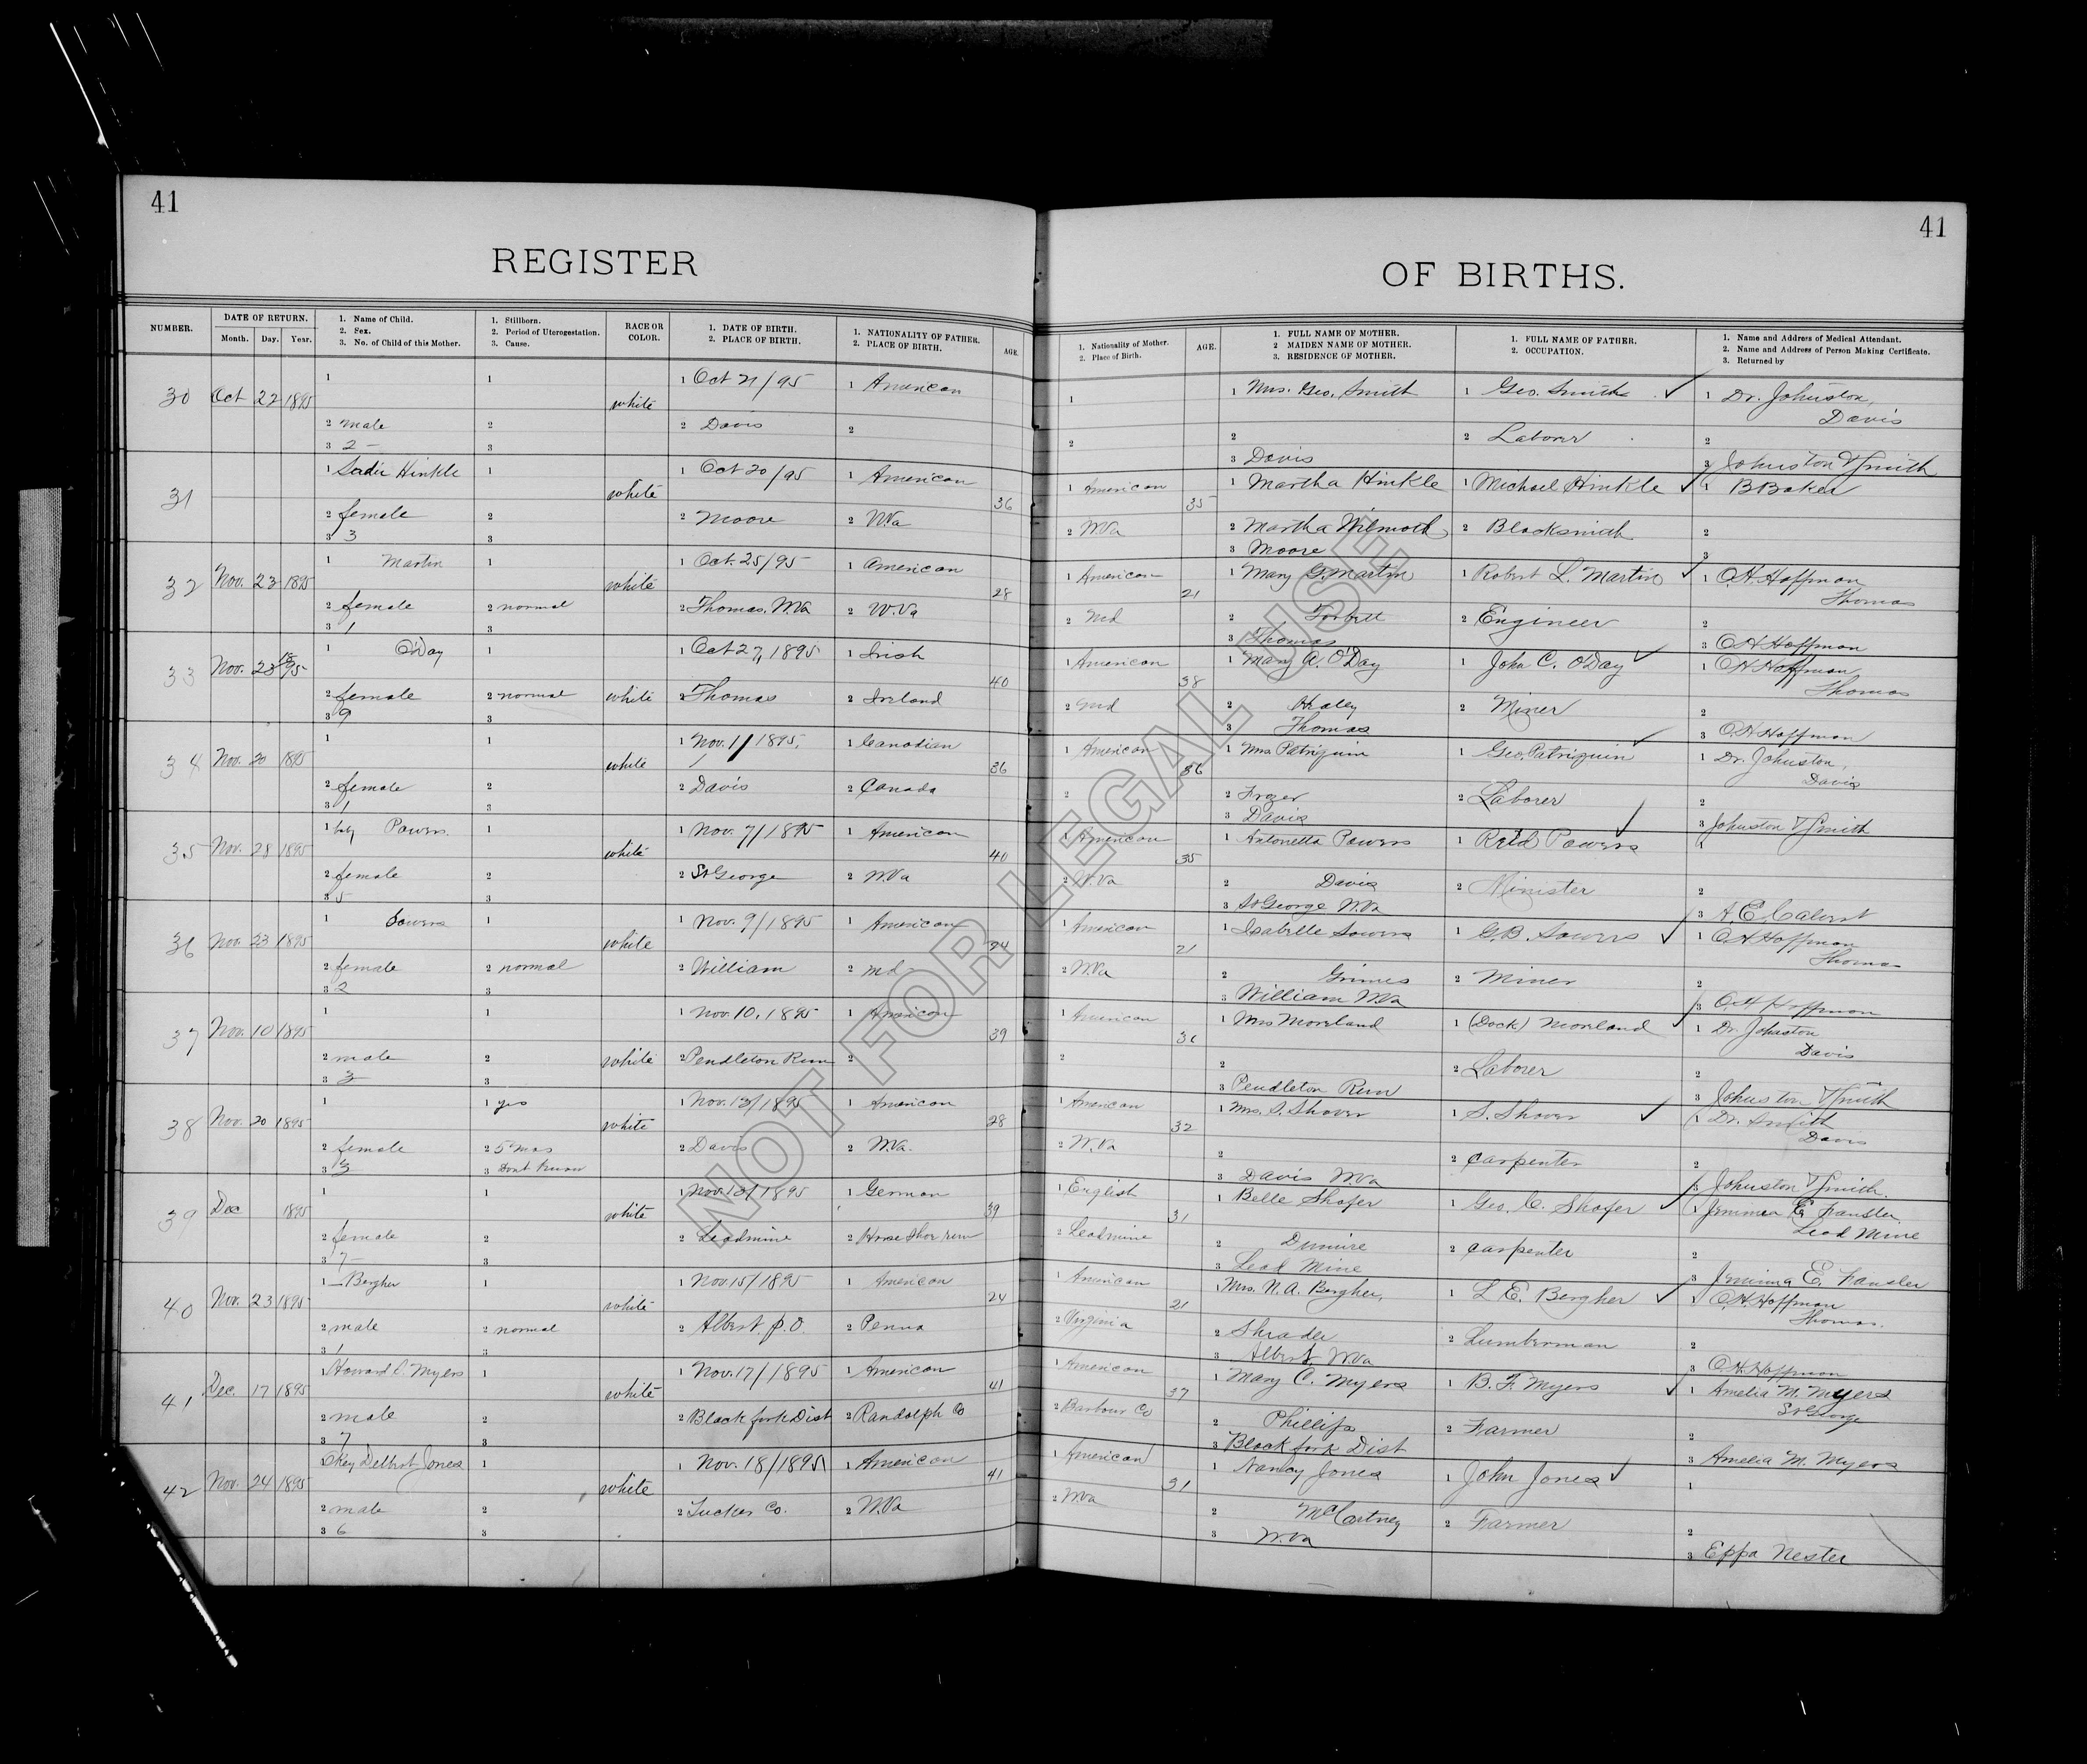 41
41
REGISTER
OF BIRTHS.
NUMBER.
DATE OF RETURN.
Month. Day. Year.
1. Name of Child.
2. Sex.
3. No. of Child of this Mother.
1. Stillborn.
2. Period of Uterogestation.
3. Cause.
RACE OR COLOR.
1. DATE OF BIRTH.
2. PLACE OF BIRTH.
1. NATIONALITY OF FATHER.
2. PLACE OF BIRTH.
AGE.
1. Nationality of Mother.
2. Place of Birth.
AGE.
1. FULL NAME OF MOTHER.
2 MAIDEN NAME OF MOTHER.
3. RESIDENCE OF MOTHER.
1. FULL NAME OF FATHER.
2. OCCUPATION.
1. Name and Address of Medical Attendant.
2. Name and Address of Person Making Certificate.
3. Returned by
30 Oct 22 1895 1 1 white 1 Oct 21/95 1 American 1 1 Mrs. Geo. Smith 1 Geo. Smith ✓ 1 Dr. Johnston, Davis
2 male 2 2 Davis 2 2 2 2 Laborer 2
3 2 3 3 Davis 3 Johnston & Smith
31 1 Sadie Hinkle 1 white 1 Oct 20/95 1 American 36 1 American 35 1 Martha Hinkle 1 Michael Hinkle ✓ 1 B Baker
2 female 2 2 Moore 2 W.Va 2 W.Va 2 Martha Wilmoth 2 Blacksmith 2
3 3 3 3 Moore 3
32 Nov. 23 1895 1 Martin 1 white 1 Oct. 25/95 1 American 28 1 American 21 1 Mary G. Martin 1 Robert L. Martin ✓ 1 O.H. Hoffman Thomas
2 female 2 normal 2 Thomas, W.Va 2 W.Va 2 Md 2 2 Engineer 2
3 1 3 3 Thomas 3 O.H. Hoffman
33 Nov. 23 1895 1 O'Day 1 white 1 Oct 27, 1895 1 Irish 40 1 American 38 1 Mary A. O'Day 1 John C. O'Day ✓ 1 O.H. Hoffman Thomas
2 female 2 normal 2 Thomas 2 Ireland 2 Md 2 Healey 2 Miner 2
3 9 3 3 Thomas 3 O.H. Hoffman
34 Nov. 20 1895 1 1 white 1 Nov. 1/1895, 1 Canadian 36 1 American 36 1 Mrs Patriquin 1 Geo. Patriquin ✓ 1 Dr. Johnston, Davis
2 female 2 2 Davis 2 Canada 2 2 Frazer 2 Laborer 2
3 1 3 3 Davis 3 Johnston & Smith
35 Nov. 28 1895 1 Powers 1 white 1 Nov. 7/1895 1 American 40 1 American 35 1 Antonetta Powers 1 Reid Powers ✓ 1
2 female 2 2 St George 2 W.Va 2 W.Va 2 Davis 2 Minister 2
3 5 3 3 St George W.Va 3 A. E. Calvert
36 Nov. 23 1895 1 Sowers 1 white 1 Nov. 9/1895 1 American 24 1 American 21 1 Isabelle Sowers 1 G.B. Sowers ✓ 1 O.H. Hoffman Thomas
2 female 2 normal 2 William 2 Md 2 W.Va 2 Grimes 2 Miner 2
3 2 3 3 William W.Va 3 O.H. Hoffman
37 Nov. 10 1895 1 1 white 1 Nov. 10, 1895 1 American 39 1 American 1 Mrs Moreland 1 (Dock) Moreland ✓ 1 Dr. Johnston Davis
2 male 2 2 Pendleton Run 2 2 2 2 Laborer 2
3 3 3 3 Pendleton Run 3 Johnston & Smith
38 Nov. 20 1895 1 1 yes white 1 Nov. 13/1895 1 American 28 1 American 32 1 Mrs. S. Shaver 1 S. Shaver ✓ 1 Dr. Smith Davis
2 female 2 5 mos 2 Davis 2 W.Va. 2 W.Va 2 2 Carpenter 2
3 3 3 Dont Know 3 Davis W.Va 3 Johnston & Smith.
39 Dec 1895 1 1 white 1 Nov. 13/1895 1 German 39 1 English 31 1 Belle Shafer 1 Geo. C. Shafer ✓ 1 Jemima E. Fansler Lead Mine
2 female 2 2 Leadmine 2 Horse Shoe run 2 Leadmine 2 Dumire 2 Carpenter 2
3 7 3 3 Lead Mine 3 Jemima E. Fansler
40 Nov. 23 1895 1 — Bergher 1 white 1 Nov. 15/1895 1 American 24 1 American 21 1 Mrs. N. A. Bergher, 1 L. E. Bergher ✓ 1 O.H. Hoffman Thomas.
2 male 2 normal 2 Albert, P.O. 2 Penna 2 Virginia 2 Shrader 2 Lumberman 2
3 1 3 3 Albert, W.Va 3 O.H. Hoffman
41 Dec. 17 1895 1 Howard C. Myers 1 white 1 Nov. 17/1895 1 American 41 1 American 37 1 Mary C. Myers 1 B. F. Myers ✓ 1 Amelia M. Myers St George
2 male 2 2 Black fork Dist 2 Randolph Co 2 Barbour Co 2 Phillips 2 Farmer 2
3 7 3 3 Black fork Dist 3 Amelia M. Myers
42 Nov. 24 1895 1 Okey Delbert Jones 1 white 1 Nov. 18/1895 1 American 41 1 American 31 1 Nancy Jones 1 John Jones ✓ 1
2 male 2 2 Tucker Co. 2 W.Va 2 W.Va 2 McCartney 2 Farmer 2
3 6 3 3 W.Va 3 Eppa Nester
NOT FOR LEGAL USE